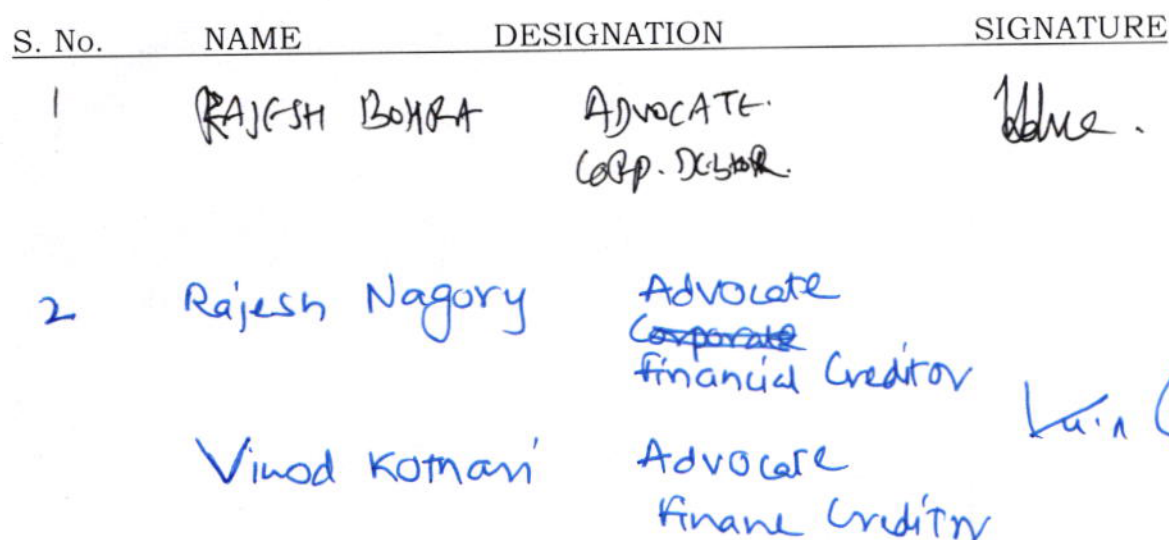 S. No. NAME DESIGNATION SIGNATURE
1 RAJESH BOHRA ADVOCATE.
CORP. Debtor.
2 Rajesh Nagory Advocate
Corporate
Financial Creditor
Vinod Kothari Advocate
Finane Creditor